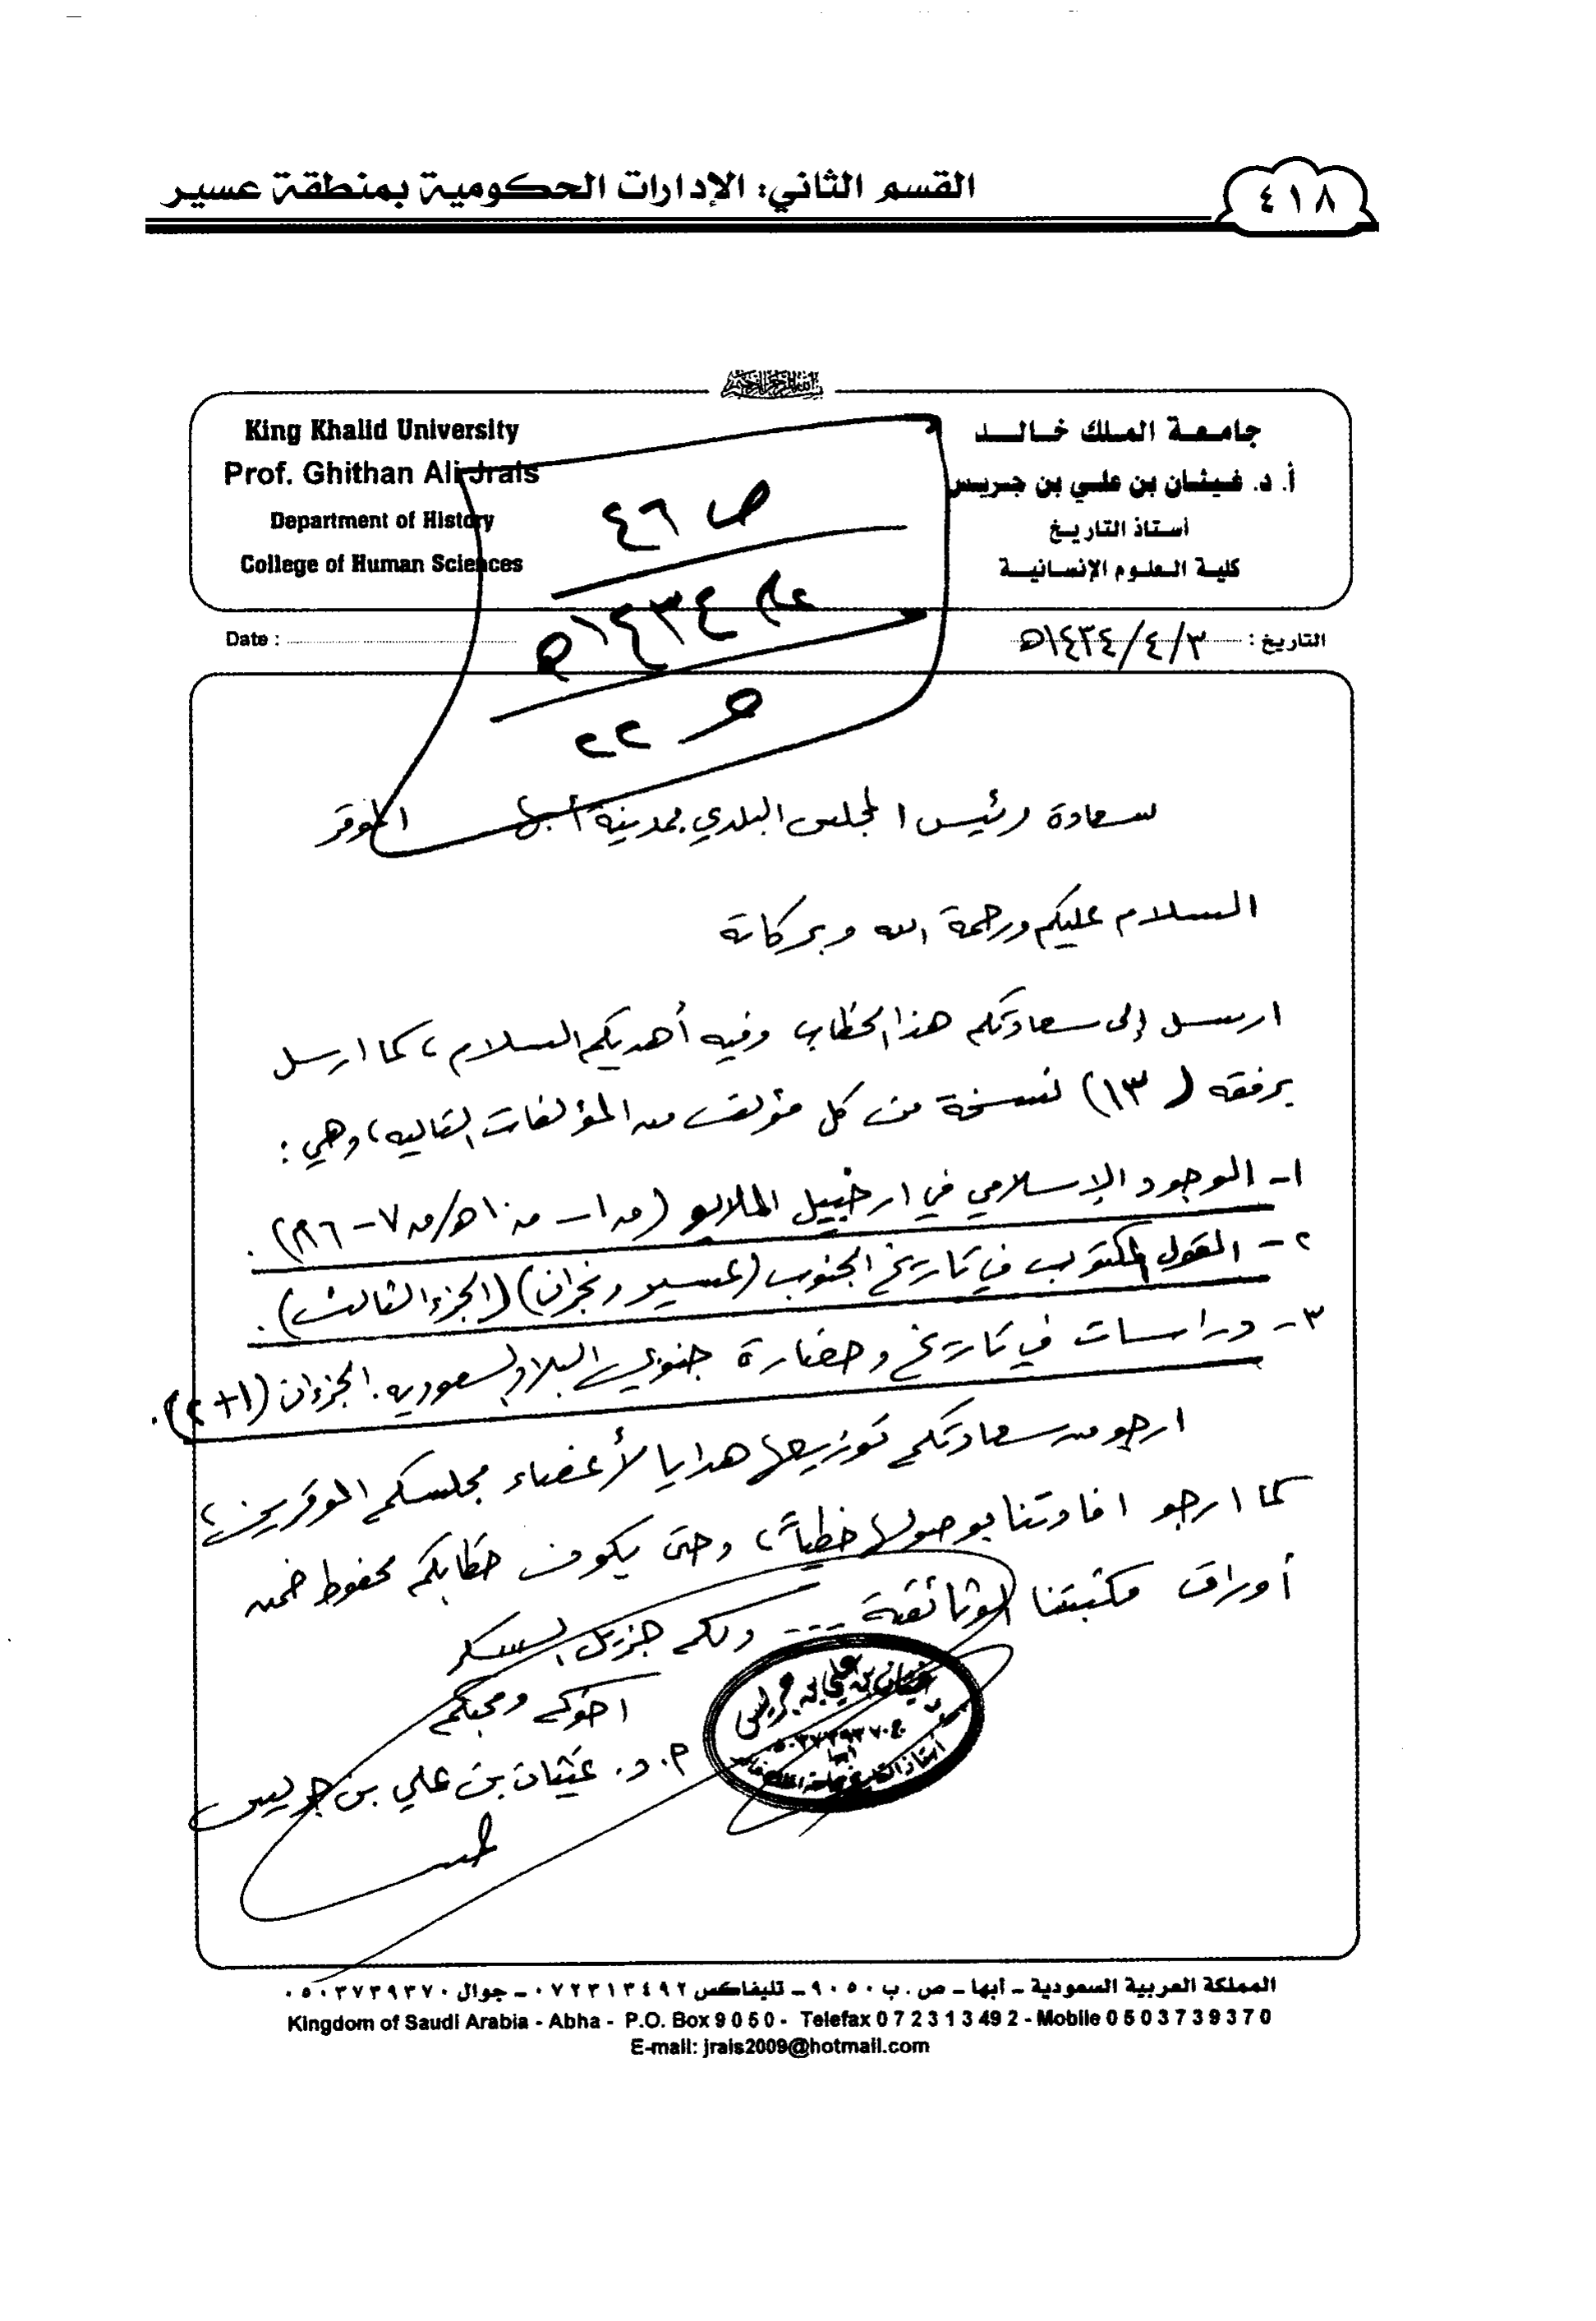 ٤١٨
القسم الثاني: الإدارات الحكومية بمنطقة عسير
جامعة الملك خالد
أ. د. غيثان بن علي بن جريس
أستاذ التاريخ
كلية العلوم الإنسانية
King Khalid University
Prof. Ghithan Ali Jrais
Department of History
College of Human Sciences
ص ٤٦
عام ١٤٣٤هـ
ص ٢٢
التاريخ : ١٤٣٤/٤/٣هـ
Date :
سعادة رئيس المجلس البلدي بمدينة أبها الموقر
السلام عليكم ورحمة الله وبركاته
ارسل إلى سعادتكم هذا الخطاب وفيه أهديكم السلام، كما ارسل
برفقه (١٣) نسخة من كل مؤلف من المؤلفات التاليه، وهي :
١- الوجود الإسلامي في ارخبيل الملايو (ق١ - ق١٠هـ/ق٧-١٦م).
٢- القول المكتوب في تاريخ الجنوب (عسير ونجران) (الجزء الثالث).
٣- دراسات في تاريخ وحضارة جنوبي البلاد السعوديه. الجزءان (١+٢).
ارجو من سعادتكم توزيعها هدايا لأعضاء مجلسكم الموقرين،
كما ارجو افادتنا بوصولها خطياً، وحتى يكون خطابكم محفوظ ضمن
أوراق مكتبتنا الوثائقية --- ولكم جزيل الشكر
اخوكم ومحبكم
أ. د. غيثان بن علي بن جريس
غيثان بن علي بن جريس
٠٥٠٣٧٣٩٣٧٠
أبها
أستاذ التاريخ جامعة الملك خالد
المملكة العربية السعودية - أبها - ص . ب ٩٠٥٠ - تليفاكس ٠٧٢٣١٣٤٩٢ - جوال ٠٥٠٣٧٣٩٣٧٠
Kingdom of Saudi Arabia - Abha - P.O. Box 9 0 5 0 - Telefax 0 7 2 3 1 3 49 2 - Mobile 0 5 0 3 7 3 9 3 7 0
E-mail: jrais2009@hotmail.com